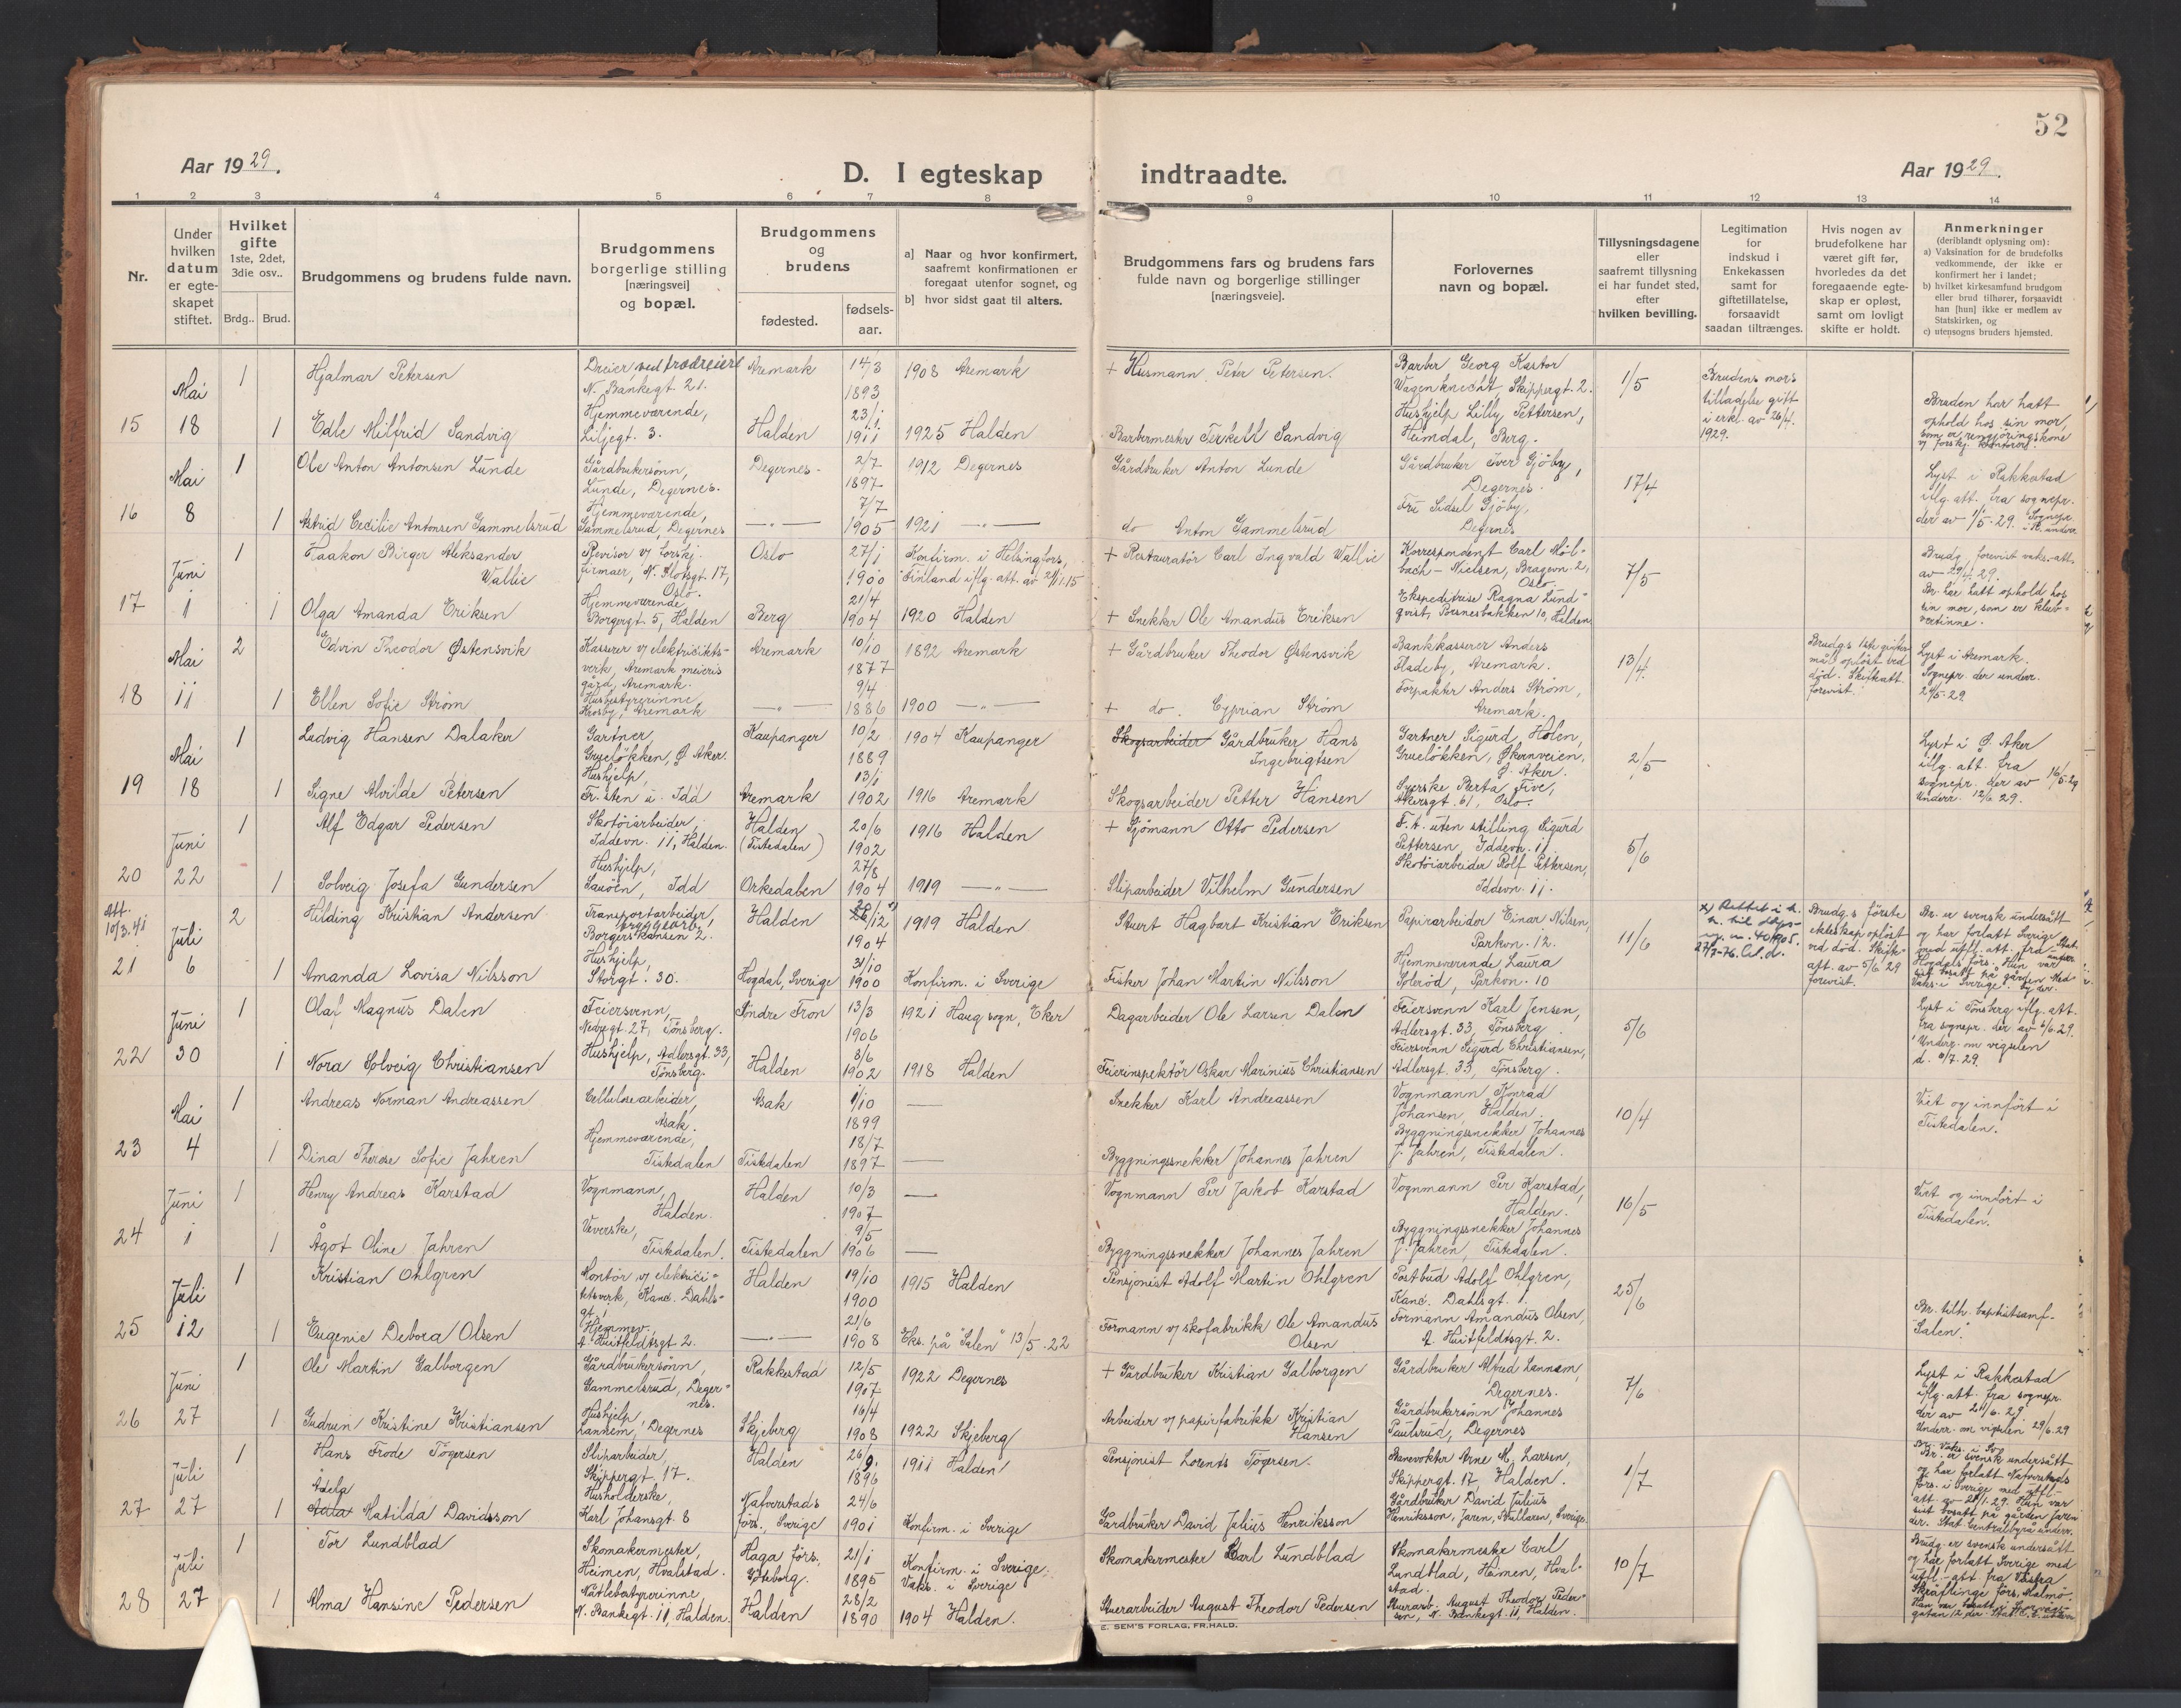 52
Aar 1929.
D. I egteskap indtraadte.
Aar 1929.
1 2 3 4 5 6 7 8 9 10 11 12 13 14
Nr.
Under hvilken datum er egteskapet stiftet.
Hvilket gifte 1ste, 2det, 3die osv..
Brdg.. Brud.
Brudgommens og brudens fulde navn.
Brudgommens borgerlige stilling [næringsvei] og bopæl.
Brudgommens og brudens
fødested.
fødsels-aar.
a] Naar og hvor konfirmert, saafremt konfirmationen er foregaat utenfor sognet, og
b] hvor sidst gaat til alters.
Brudgommens fars og brudens fars fulde navn og borgerlige stillinger [næringsveie].
Forlovernes navn og bopæl.
Tillysningsdagene eller saafremt tillysning ei har fundet sted, efter hvilken bevilling.
Legitimation for indskud i Enkekassen samt for giftetillatelse, forsaavidt saadan tiltrænges.
Hvis nogen av brudefolkene har været gift før, hvorledes da det foregaaende egteskap er opløst, samt om lovligt skifte er holdt.
Anmerkninger (deriblandt oplysning om):
a) Vaksination for de brudefolks vedkommende, der ikke er konfirmert her i landet;
b) hvilket kirkesamfund brudgom eller brud tilhører, forsaavidt han [hun] ikke er medlem av Statskirken, og
c) utensogns bruders hjemsted.
15 Mai 18
1 Hjalmar Petersen Dreier, ved trædreieri N. Bankegt. 21. Aremark 14/3 1893 1908 Aremark + Husmann Peter Petersen. Barber Georg Kastor Wagenknecht Skippergt. 2. 1/5 Brudens mors tilladelse gift i erkl. av 26/4. 1929.
1 Edle Milfrid Sandvig Hjemmeværende, Liljegt. 3. Halden 23/1 1911 1925 Halden Barbermester Terkell Sandvig Hushjelp Lilly Pettersen, Heimdal, Berg. Bruden har hatt ophold hos sin mor, som er rengjöringskone
16 Mai 8
1 Ole Anton Antonsen Lunde Gårdbrukersönn, Lunde, Degernes. Degernes 2/7 1897 1912 Degernes Gårdbruker Anton Lunde Gårdbruker Iver Gjöby, Degernes. 17/4 Lyst i Rakkestad iflg. att. fra sognepr. der av 1/5.29.
1 Astrid Cecilie Antonsen Gammelsrud Hjemmeværende, Gammelsrud, Degernes —"— 7/7 1905 1921 —"— do Anton Gammelsrud Fru Sidsel Gjöby, Degernes
17 Juni 1
1 Haakon Birger Aleksander Wallie Revisor v/ forskj. firmaer, N. Slotsgt. 17, Oslo. Oslo 27/1 1900 Konfirm. i Helsingfors, Finland iflg. att. av + Restauratör Carl Ingvald Wallie Korrespondent Carl Mölbach-Nielsen, Bragevn. 2, Oslo. 7/5 Brudg. forevist vaks.-att. av 29/4.29.
1 Olga Amanda Eriksen Hjemmeværende, Borgergt. 5, Halden Berg 21/4 1904 1920 Halden + Snekker Ole Amandus Eriksen Ekspeditrise Ragna Lundqvist, Busnesbakken 10, Halden Br. har hatt ophold hos sin mor, som er klubvertinne.
18 Mai 11
2 Edvin Theodor Østensvik Kasserer v/ elektricitetsverk, Aremark meieris gård, Aremark. Aremark 10/10 1877 1892 Aremark + Gårdbruker Theodor Østensvik Bankkasserer Anders Fladeby, Aremark. 13/4. Brudgs 1ste giftermål oplöst ved död. Skifteatt. forevist. Lyst i Aremark. Sognepr. der underr.
1 Ellen Sofie Ström Husbestyrerinne, Aremark —"— 9/4 1886 1900 —"— + do. Cyprian Ström Forpakter Anders Ström, Aremark.
19 Mai 18
1 Ludvig Hansen Dalaker Gartner, Grueløkken, Ø. Aker. Kaupanger 10/2 1889 1904 Kaupanger Skogsarbeider Gårdbruker Hans Ingebrigtsen Gartner Sigurd Holen, Grueløkken, Økernveien, Ø. Aker. 2/5 Lyst i Ø. Aker iflg. att. fra sognepr. der av 16/5.29 Underr. 12/6 29.
1 Signe Alvilde Petersen Hushjelp, Idd Aremark 13/1 1902 1916 Aremark Skogsarbeider Petter Hansen Syerske Berta Five, Akersgt. 61, Oslo.
20 Juni 22
1 Alf Edgar Pedersen Skotöiarbeider, Iddevn. 11, Halden. Halden (Tistedalen) 20/6 1902 1916 Halden + Sjömann Otto Pedersen F. t. uten stilling Sigurd Pettersen, Iddevn. 11 5/6
1 Solveig Josefa Gundersen Hushjelp, Sauöen, Idd Orkedalen 27/8 1904 1919 —"— Sliparbeider Vilhelm Gundersen Skotöiarbeider Rolf Pettersen, Iddevn. 11.
Att. 10/3.41
21 Juli 6
2 Hilding Kristian Andersen Transportarbeider, Borgerskansen 2. Halden 1904 1919 Halden Stuert Hagbart Kristian Eriksen Papirarbeider Einar Nilsen, Parkvn. 12. 11/6 Brudg.s förste ekteskap oplöst ved död. Skifteatt. av 5/6 29 forevist. Br. er svensk undersått og har forlatt Sverige
1 Amanda Lovisa Nilsson Hushjelp, Storgt. 30. Hogdal, Sverige 31/10 1900 Konfirm. i Sverige Fisker Johan Martin Nilsson Hjemmeværende Laura Soleröd, Parkvn. 10
22 Juni 30
1 Olaf Magnus Dalen Feiersvenn, Nedregt. 27, Tönsberg. Söndre Fron 13/3 1906 1921 Haug sogn, Eker Dagarbeider Ole Larsen Dalen Feiersvenn Karl Jensen, Adlersgt. 33, Tönsberg. 5/6 Lyst i Tönsberg iflg. att. fra sognepr. der av Underr. om vigselen
1 Nora Solveig Christiansen Hushjelp, Adlersgt. 33, Tönsberg. Halden 8/6 1902 1918 Halden Feierinspektör Oskar Marinius Christiansen Feiersvenn Sigurd Christiansen, Adlersgt. 33, Tönsberg.
23 Mai 4
1 Andreas Norman Andreassen Cellulosearbeider, Asak. Asak 1/10 1899 — Snekker Karl Andreassen Vognmann Konrad Johansen, Halden. 10/4 Viet og innfört i Tistedalen.
1 Dina Therese Sofie Jahren Hjemmeværende, Tistedalen Tistedalen 18/7 1897 — Byggningssnekker Johannes Jahren Byggningssnekker Johannes J. Jahren, Tistedalen.
24 Juni 1
1 Henry Andreas Karstad Vognmann, Halden. Halden 10/3 1907 — Vognmann Per Jakob Karstad Vognmann Per Karstad, Halden. 16/5 Viet og innfört i Tistedalen.
1 Ågot Oline Jahren Veverske, Tistedalen. Tistedalen 9/5 1906 — Byggningssnekker Johannes Jahren Byggningssnekker Johannes J. Jahren, Tistedalen.
25 Juli 12
1 Kristian Ohlgren Kontör v/ elektricitetsverk, Kanc. Dahlsgt. 1 Halden 19/10 1900 1915 Halden Pensjonist Adolf Martin Ohlgren Postbud Adolf Ohlgren, Kanc. Dahlsgt. 1. 25/6
1 Eugenie Debora Olsen Hjemmev. A. Huitfeldtsgt. 2. —"— 21/6 1908 Eks. på "Salen" 13/5.22 Formann v/ skofabrikk Ole Amandus Olsen Formann Amandus Olsen, A. Huitfeldtsgt. 2. Br. tilh. baptistsamf. "Salen".
26 Juni 27
1 Ole Martin Galborgen Gårdbrukersönn, Gammelsrud, Degernes. Rakkestad 12/5 1907 1922 Degernes + Gårdbruker Kristian Galborgen Gårdbruker Alfred Lannem, Degernes. 7/6 Lyst i Rakkestad iflg. att. fra sognepr. der av Underr. om vigselen 29/6.29
1 Gudrun Kristine Kristiansen Hushjelp, Lannem, Degernes Skjeberg 16/4 1908 1922 Skjeberg Arbeider v/ papirfabrikk Kristian Hansen Gårdbrukersönn Johannes Paulsrud, Degernes
27 Juli 27
1 Hans Frode Tögersen Sliparbeider, Skippergt. 17. Halden 26/9 1896 1911 Halden Pensjonist Lorents Tögersen. Banevokter Arne M. Larsen, Skippergt. 17, Halden. 1/7 Br. er svensk undersått
1 Adela Matilda Davidsson Husholderske, Karl Johansgt. 8 Nafverstads förs., Sverige 24/6 1901 Konfirm. i Sverige Gårdbruker David Julius Henriksson Gårdbruker David Julius Henriksson, Jaren, Bullaren, Sverige.
28 Juli 27
1 Tor Lundblad Skomakermester, Heimen, Hvalstad. Haga förs., Göteborg. 21/1 1895 Konfirm. i Sverige. Vaks. i Sverige Skomakermester Carl Lundblad Skomakermester Carl Lundblad, Heimen, Hvalstad. 10/7 Brudg. er svensk undersått og har forlatt Sverige med
1 Alma Hansine Pedersen N. Bankegt. 11, Halden. Halden 28/2 1890 1904 Halden. Stuerarbeider August Theodor Pedersen Stuerarb. August Theodor Pedersen, N. Bankegt. 11, Halden.
E. SEM'S FORLAG, FR.HALD.